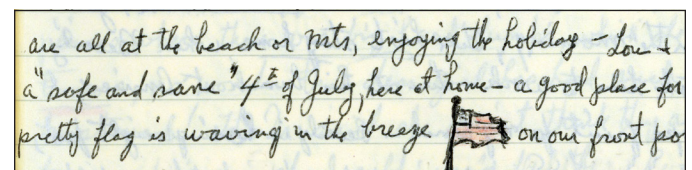 are all at the beach or mts, enjoying the holiday - Lou &
a "safe and sane" 4th of July, here at home - a good place for
pretty flag is waving in the breeze on our front po